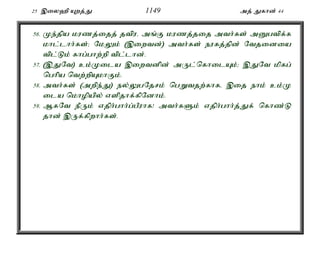 25 இலைஹி யுறத்து 1149 அத் துகான் 44
56. முந்திய மரணத்தைத் தவிர. அங்கு மரணத்ததை அவர்கள் அனுபவிக்க
மாட்டார்கள்; மேலும் (இறைவன்) அவர்கள் நரகத்தின் வேதனையை
விட்டும் காப்பாற்றி விட்டான்.
57. (இதுவே) உம்முடைய இறைவனின் அருட்கொடையும்; இதுவே மிகப்
பெரிய வெற்றியுமாகும்.
58. அவர்கள் (அறிந்து) நல்லுபதேசம் பெறுவதற்காக, இதை நாம் உம்மு
டைய மொழியில் எளிதாக்கினோம்.
59. ஆகவே நீரும் எதிர்பார்ப்பீராக! அவர்களும் எதிர்பார்த்துக் கொண்டு
தான் இருக்கிறார்கள்.